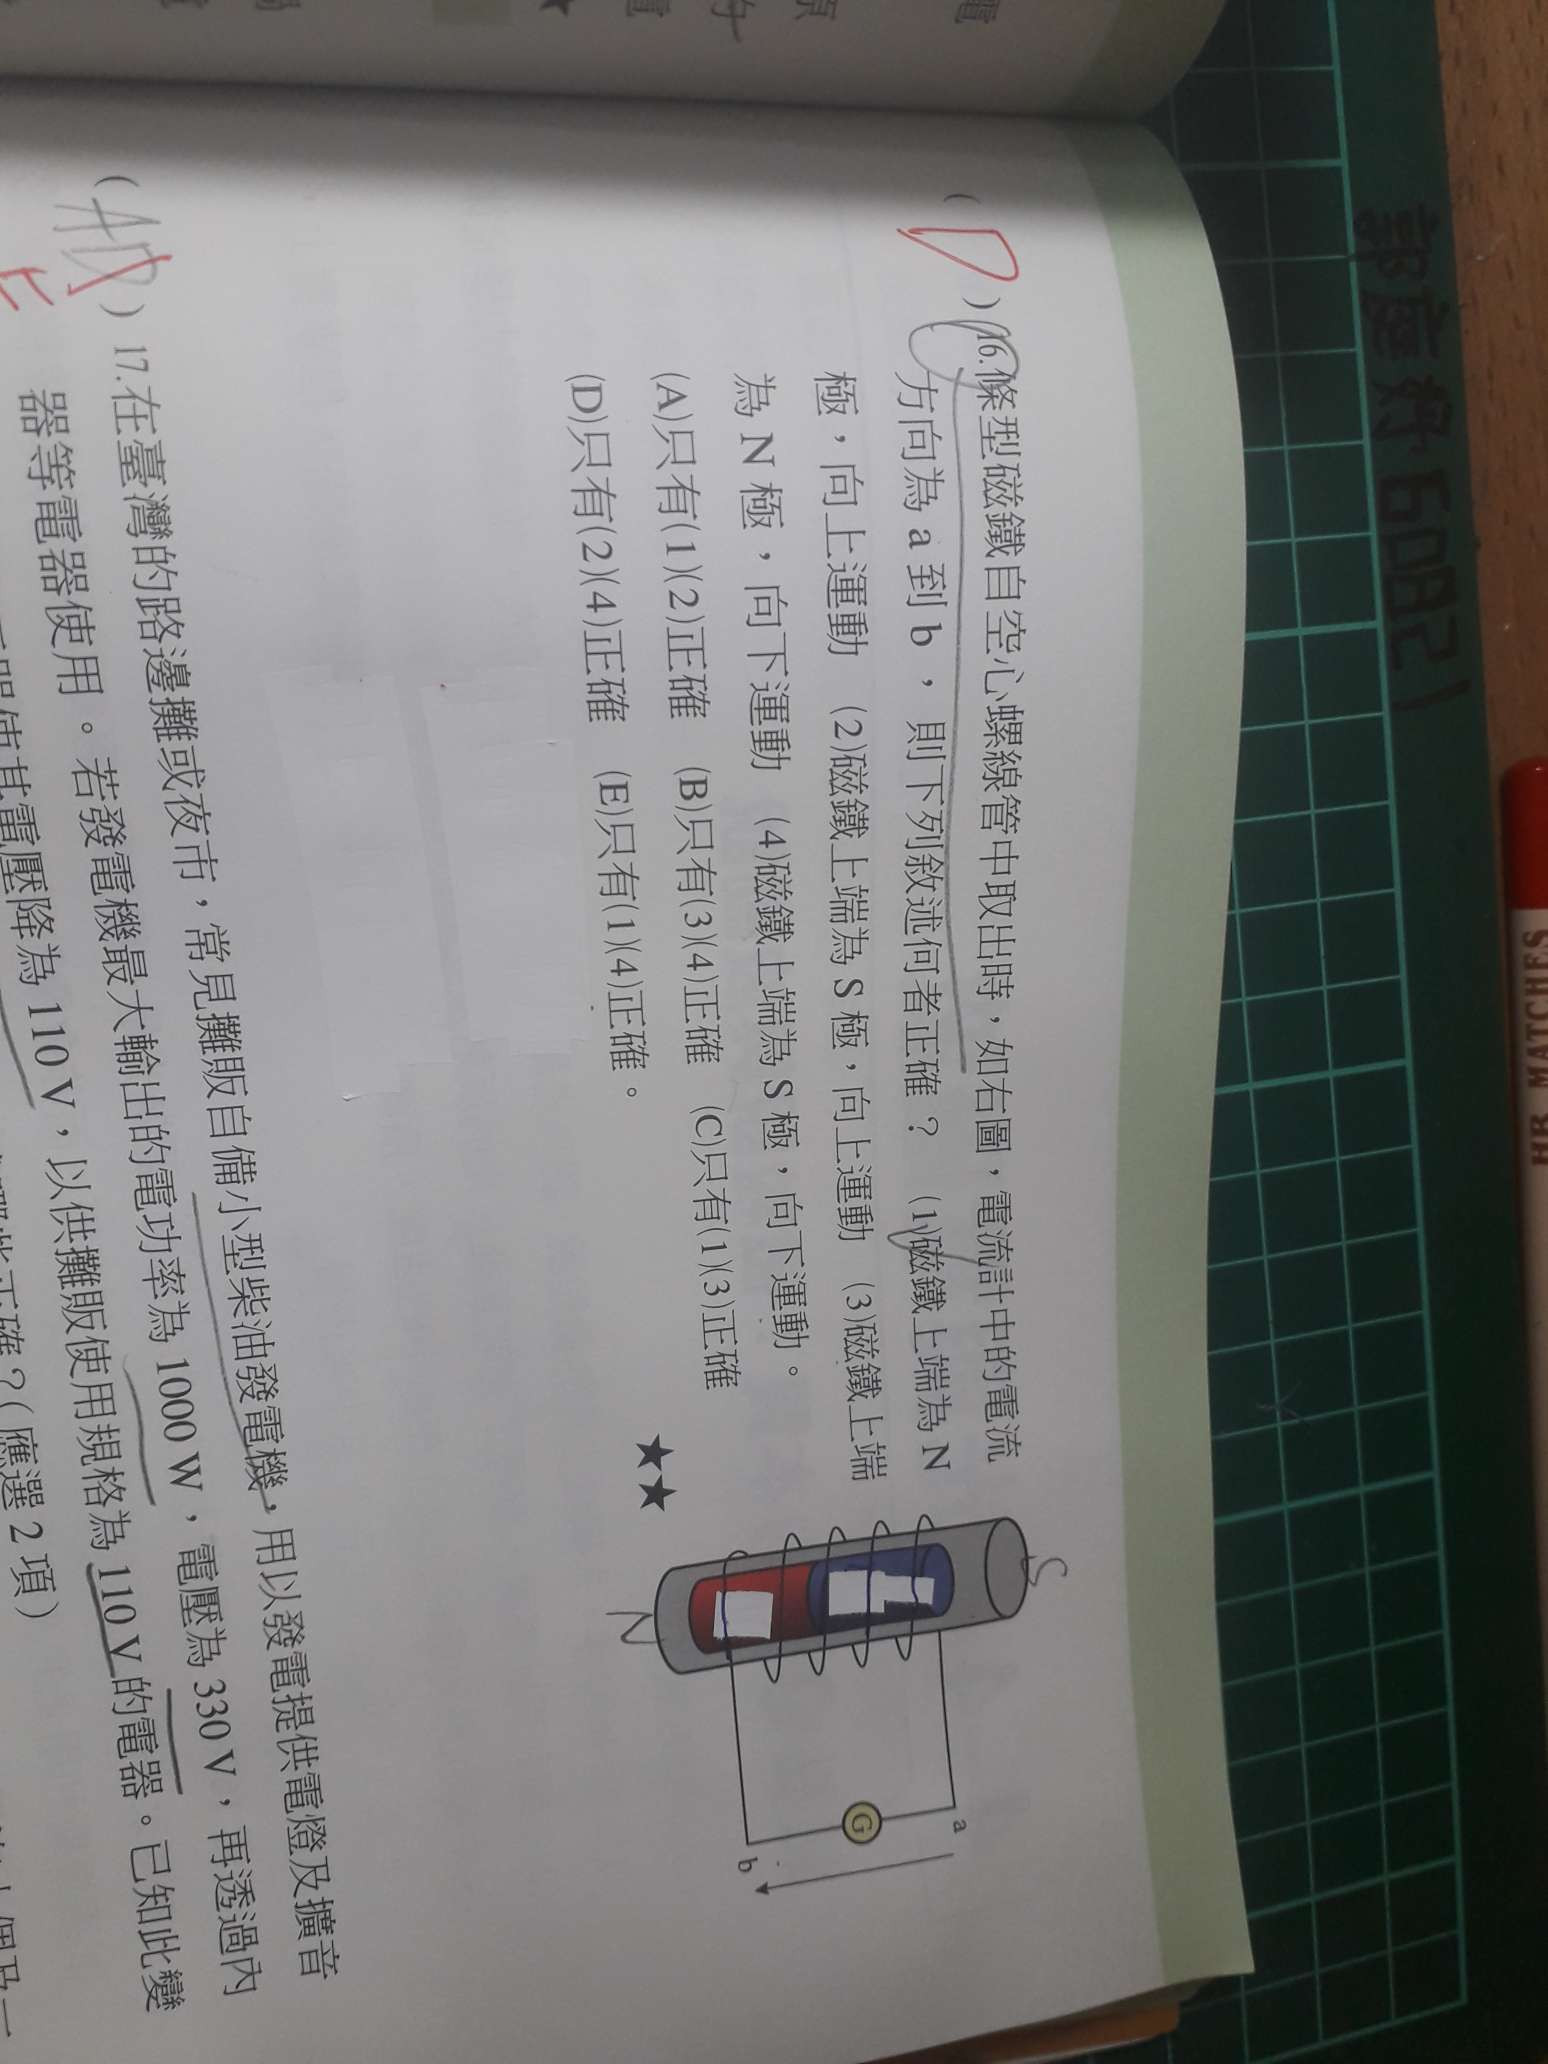 ( D ) 16.條型磁鐵自空心螺線管中取出時，如右圖，電流計中的電流
方向為 a 到 b ，則下列敘述何者正確？ (1)磁鐵上端為 N
極，向上運動 (2)磁鐵上端為 S 極，向上運動 (3)磁鐵上端
為 N 極，向下運動 (4)磁鐵上端為 S 極，向下運動。
(A)只有(1)(2)正確 (B)只有(3)(4)正確 (C)只有(1)(3)正確
(D)只有(2)(4)正確 (E)只有(1)(4)正確。
★★
S
N
G
a
b
( ) 17.在臺灣的路邊攤或夜市，常見攤販自備小型柴油發電機，用以發電提供電燈及擴音
器等電器使用。若發電機最大輸出的電功率為 1000 W，電壓為 330 V，再透過內
使其電壓降為 110 V，以供攤販使用規格為 110 V 的電器。已知此變
正確？（應選 2 項）
60821
HB MATCHES